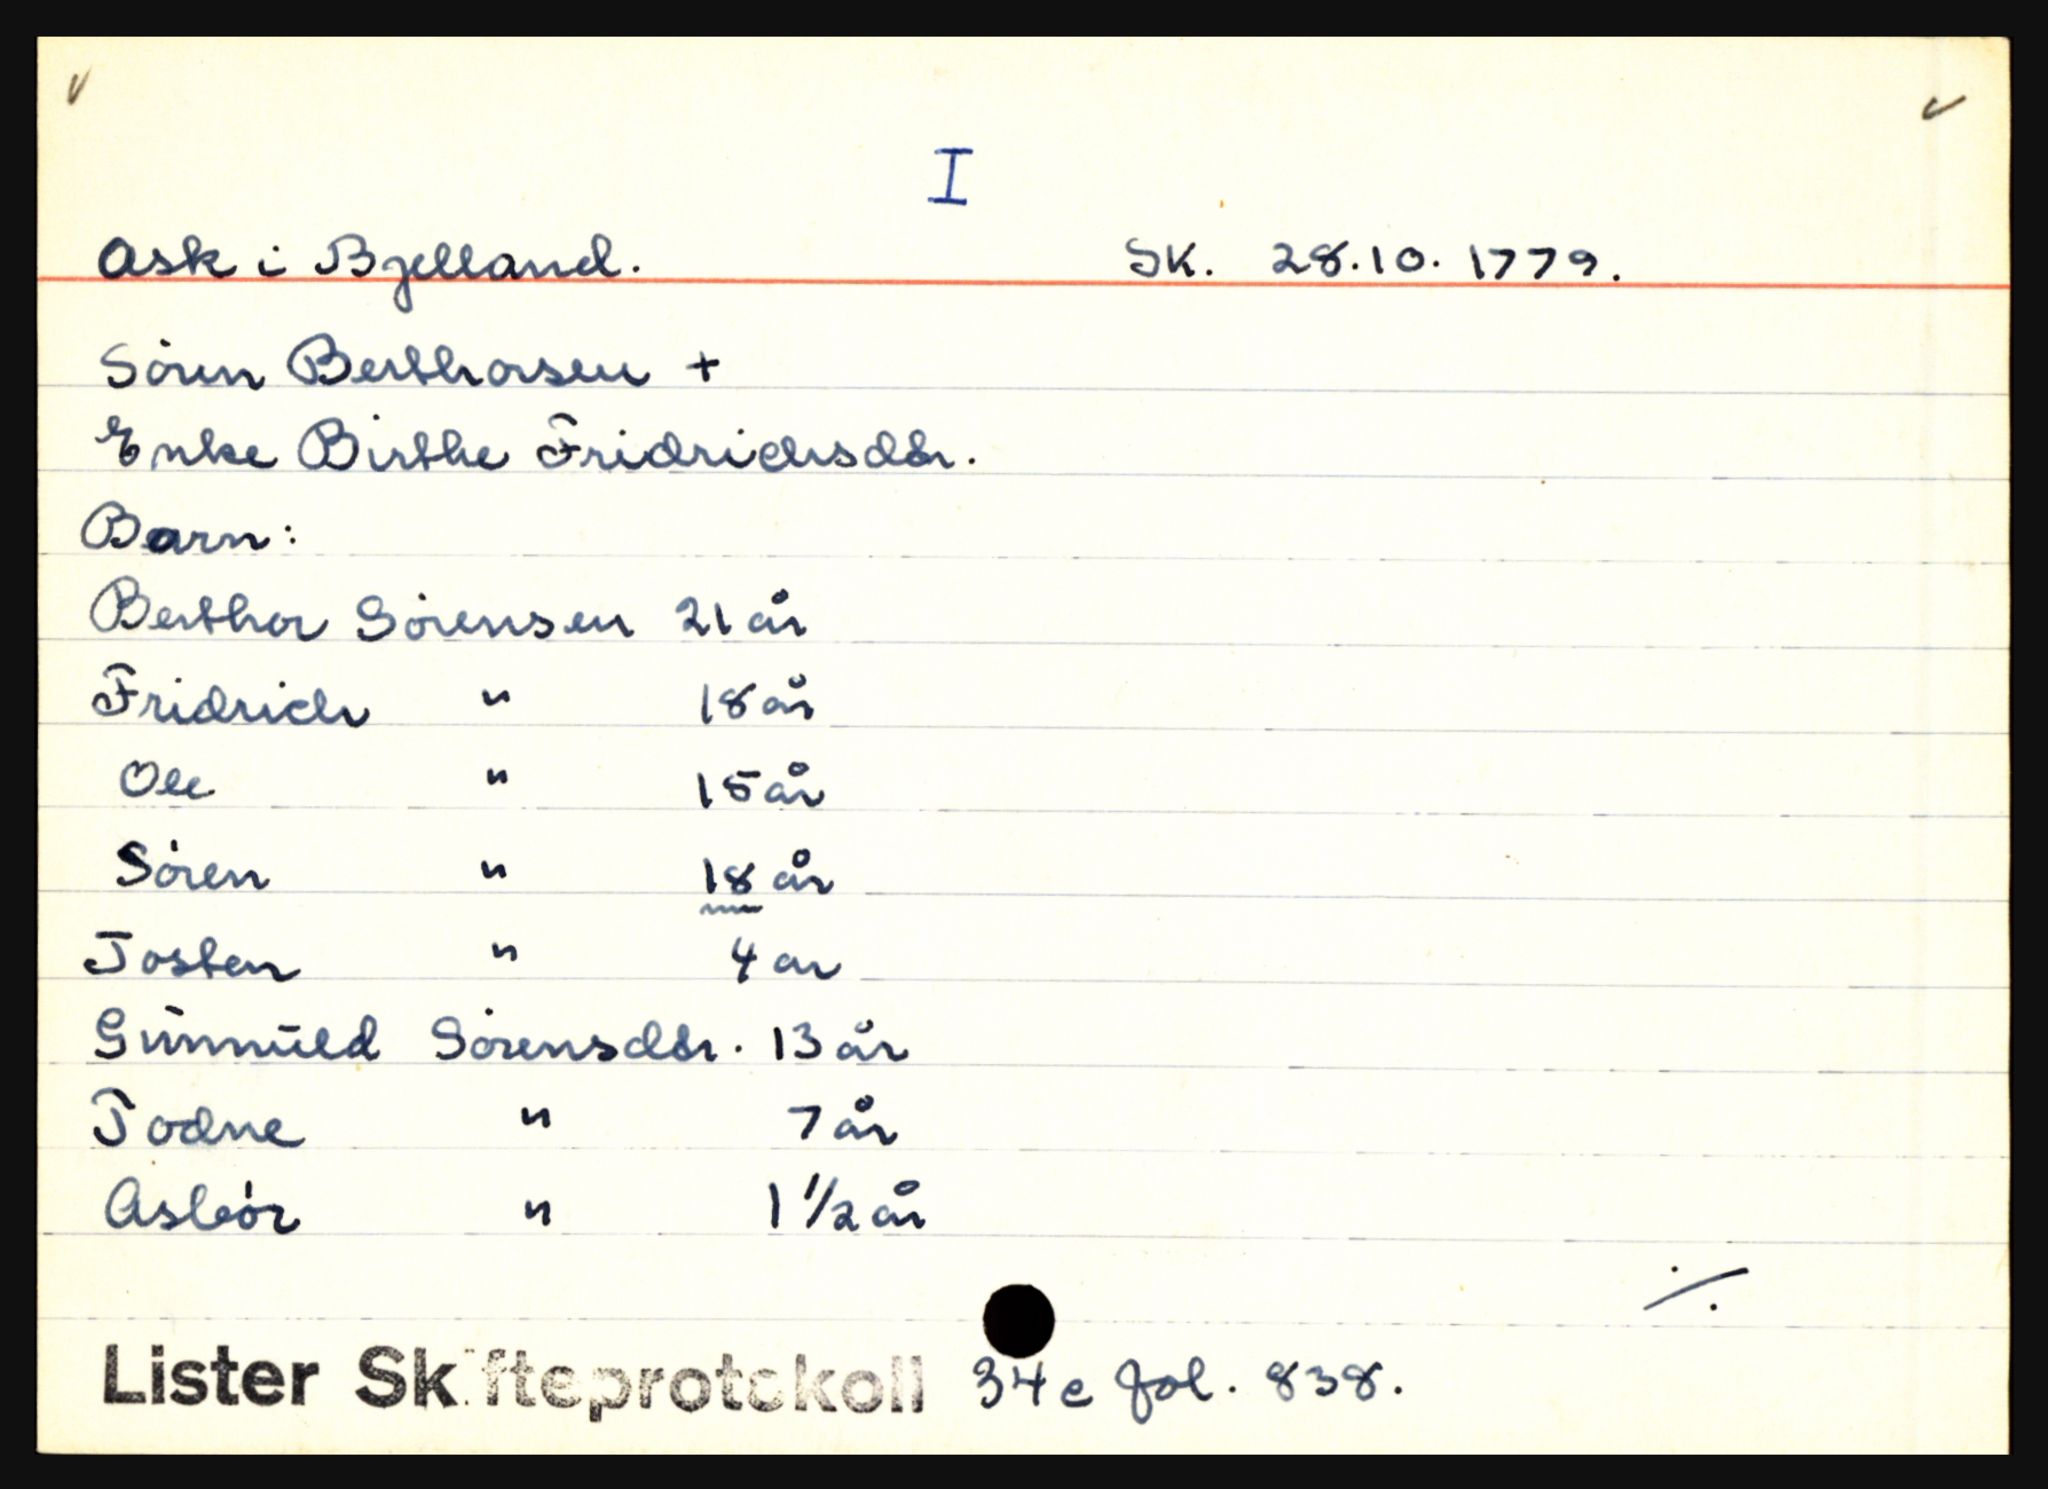 I
Ask i Bjelland. SK. 28.10.1779.
Sören Berthorsen +
Enke Birthe Fridrichsdtr.
Barn:
Berthor Sörensen 21 år
Fridrich " 18 år
Ole " 15 år
Sören " 18 år
Tosten " 4 ar
Günnüld Sörensdtr. 13 år
Todne " 7 år
Asbör " 1 1/2 år
./.
Lister Skifteprotokoll 34e fol. 838.